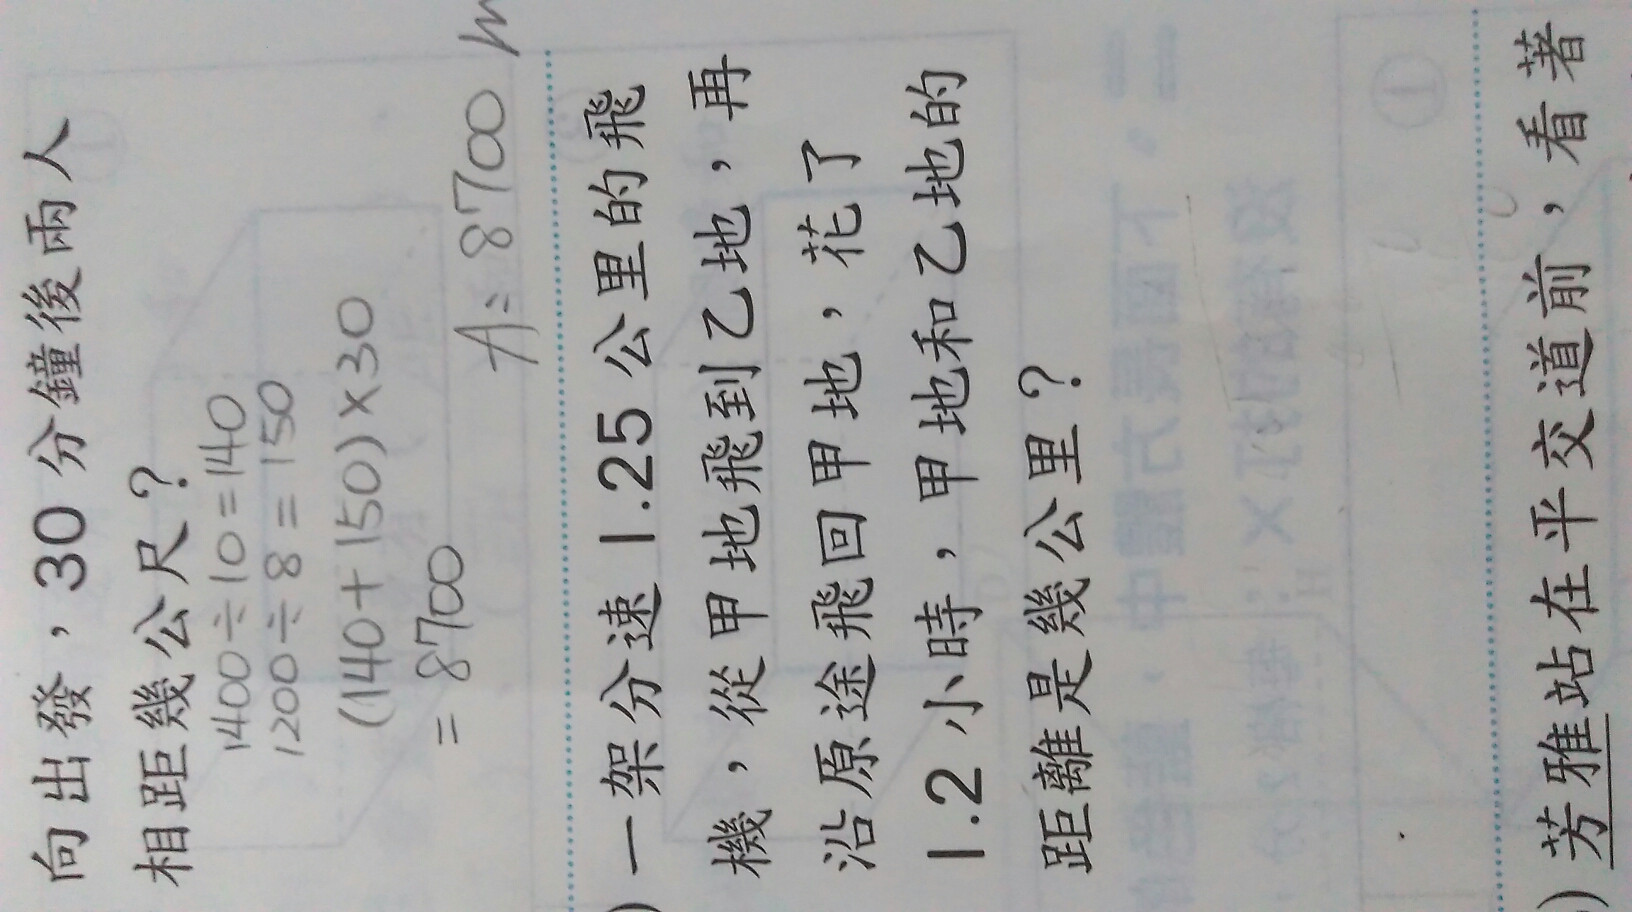 向出發，30 分鐘後兩人
相距幾公尺？
1400÷10=140
1200÷8=150
(140+150)×30
=8700
A:8700 m
)一架分速 1.25 公里的飛
機，從甲地飛到乙地，再
沿原途飛回甲地，花了
1.2 小時，甲地和乙地的
距離是幾公里？
)芳雅站在平交道前，看著